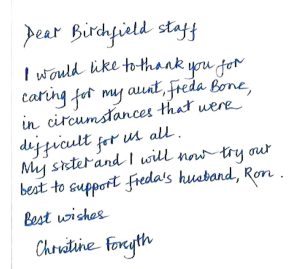 Dear Birchfield staff
I would like to thank you for
caring for my aunt, Freda Bone,
in circumstances that were
difficult for us all.
My sister and I will now try our
best to support Freda's husband, Ron.
Best wishes
Christine Forsyth